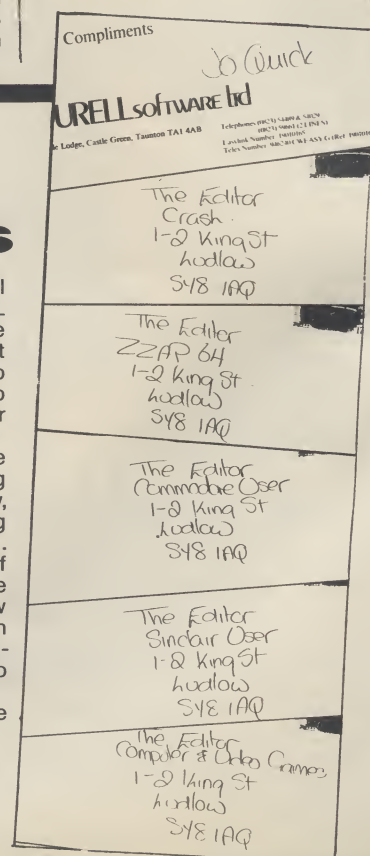 Compliments
Jo Quick
URELL SOFTWARE ltd
le Lodge, Castle Green, Taunton TA1 4AB
The Editor
Crash.
1-2 King St
Ludlow
SY8 1AQ
The Editor
ZZAP 64
1-2 King St.
Ludlow
SY8 1AQ
The Editor
Commodore User
1-2 King St
Ludlow
SY8 1AQ
The Editor
Sinclair User
1-2 King St
Ludlow
SY8 1AQ
The Editor
Computer & Video Games
1-2 King St
Ludlow
SY8 1AQ